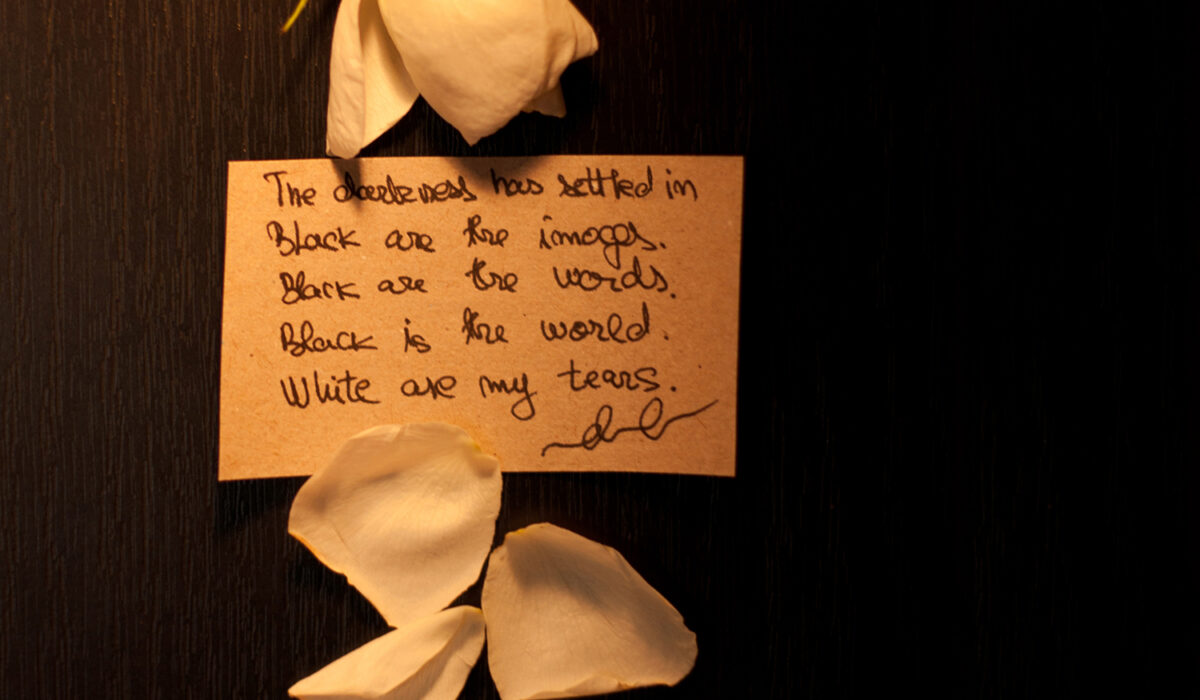 The darkness has settled in
Black are the images.
Black are the words.
Black is the world.
White are my tears.